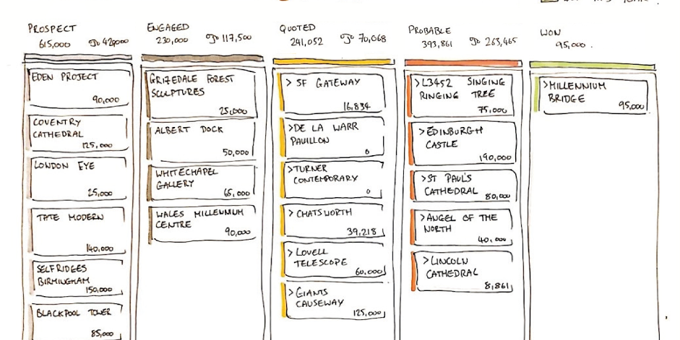 PROSPECT
615,000
ENGAGED
230,000 117,500
QUOTED
241,052 70,068
PROBABLE
393,861 265,465
WON
95,000
EDEN PROJECT
90,000
COVENTRY
CATHEDRAL
125,000
LONDON EYE
25,000
TATE MODERN
140,000
SELFRIDGES
BIRMINGHAM
150,000
BLACKPOOL TOWER
85,000
GRIZEDALE FOREST
SCULPTURES
25,000
ALBERT DOCK
50,000
WHITECHAPEL
GALLERY
65,000
WALES MILLENNIUM
CENTRE
90,000
> SF GATEWAY
16,834
> DE LA WARR
PAVILLON
0
> TURNER
CONTEMPORARY
0
> CHATSWORTH
39,218
> LOVELL
TELESCOPE
60,000
> GIANTS
CAUSEWAY
125,000
> L3452 SINGING
RINGING TREE
75,000
> EDINBURGH
CASTLE
190,000
> ST PAUL'S
CATHEDRAL
80,000
> ANGEL OF THE
NORTH
40,000
> LINCOLN
CATHEDRAL
8,861
> MILLENNIUM
BRIDGE
95,000